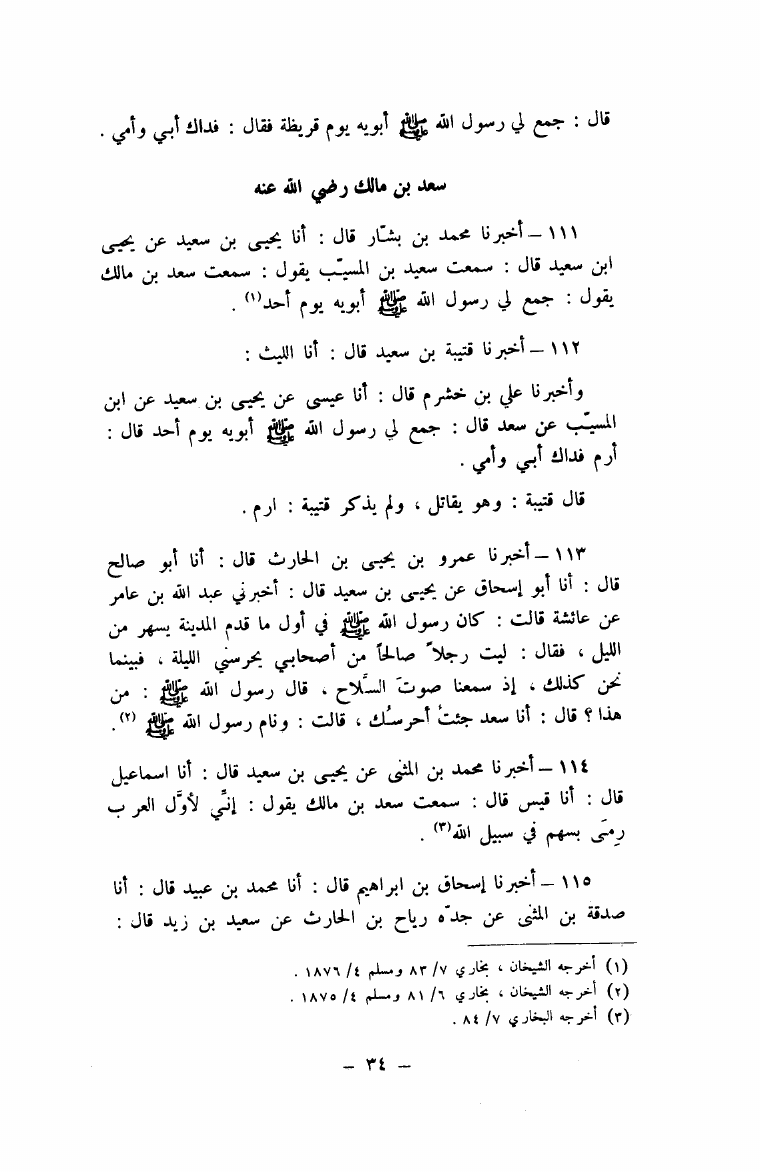 قال : جمع لي رسول الله ﷺ أبويه يوم قريظة فقال : فداك أبي وأمي .
سعد بن مالك رضي الله عنه
١١١ – أخبرنا محمد بن بشّار قال : أنا يحيى بن سعيد عن يحيى
ابن سعيد قال : سمعت سعيد بن المسيّب يقول : سمعت سعد بن مالك
يقول : جمع لي رسول الله ﷺ أبويه يوم أحد(١) .
١١٢ – أخبرنا قتيبة بن سعيد قال : أنا الليث :
وأخبرنا علي بن خشرم قال : أنا عيسى عن يحيى بن سعيد عن ابن
المسيّب عن سعد قال : جمع لي رسول الله ﷺ أبويه يوم أحد قال :
أرم فداك أبي وأمي .
قال قتيبة : وهو يقاتل ، ولم يذكر قتيبة : ارم .
١١٣ – أخبرنا عمرو بن يحيى بن الحارث قال : أنا أبو صالح
قال : أنا أبو إسحاق عن يحيى بن سعيد قال : أخبرني عبد الله بن عامر
عن عائشة قالت : كان رسول الله ﷺ في أول ما قدم المدينة يسهر من
الليل ، فقال : ليت رجلاً صالحاً من أصحابي يحرسني الليلة ، فبينما
نحن كذلك ، إذ سمعنا صوتَ السّلاح ، قال رسول الله ﷺ : من
هذا ؟ قال : أنا سعد جئتُ أحرسُك ، قالت : ونام رسول الله ﷺ (٢) .
١١٤ – أخبرنا محمد بن المثنى عن يحيى بن سعيد قال : أنا اسماعيل
قال : أنا قيس قال : سمعت سعد بن مالك يقول : إنِّي لأوَّل العرب
رمَى بسهم في سبيل الله(٣) .
١١٥ – أخبرنا إسحاق بن ابراهيم قال : أنا محمد بن عبيد قال : أنا
صدقة بن المثنى عن جدّه رياح بن الحارث عن سعيد بن زيد قال :
(١) أخرجه الشيخان ، بخاري ٧/ ٨٣ ومسلم ٤/ ١٨٧٦ .
(٢) أخرجه الشيخان ، بخاري ٦/ ٨١ ومسلم ٤/ ١٨٧٥ .
(٣) أخرجه البخاري ٧/ ٨٤ .
– ٣٤ –